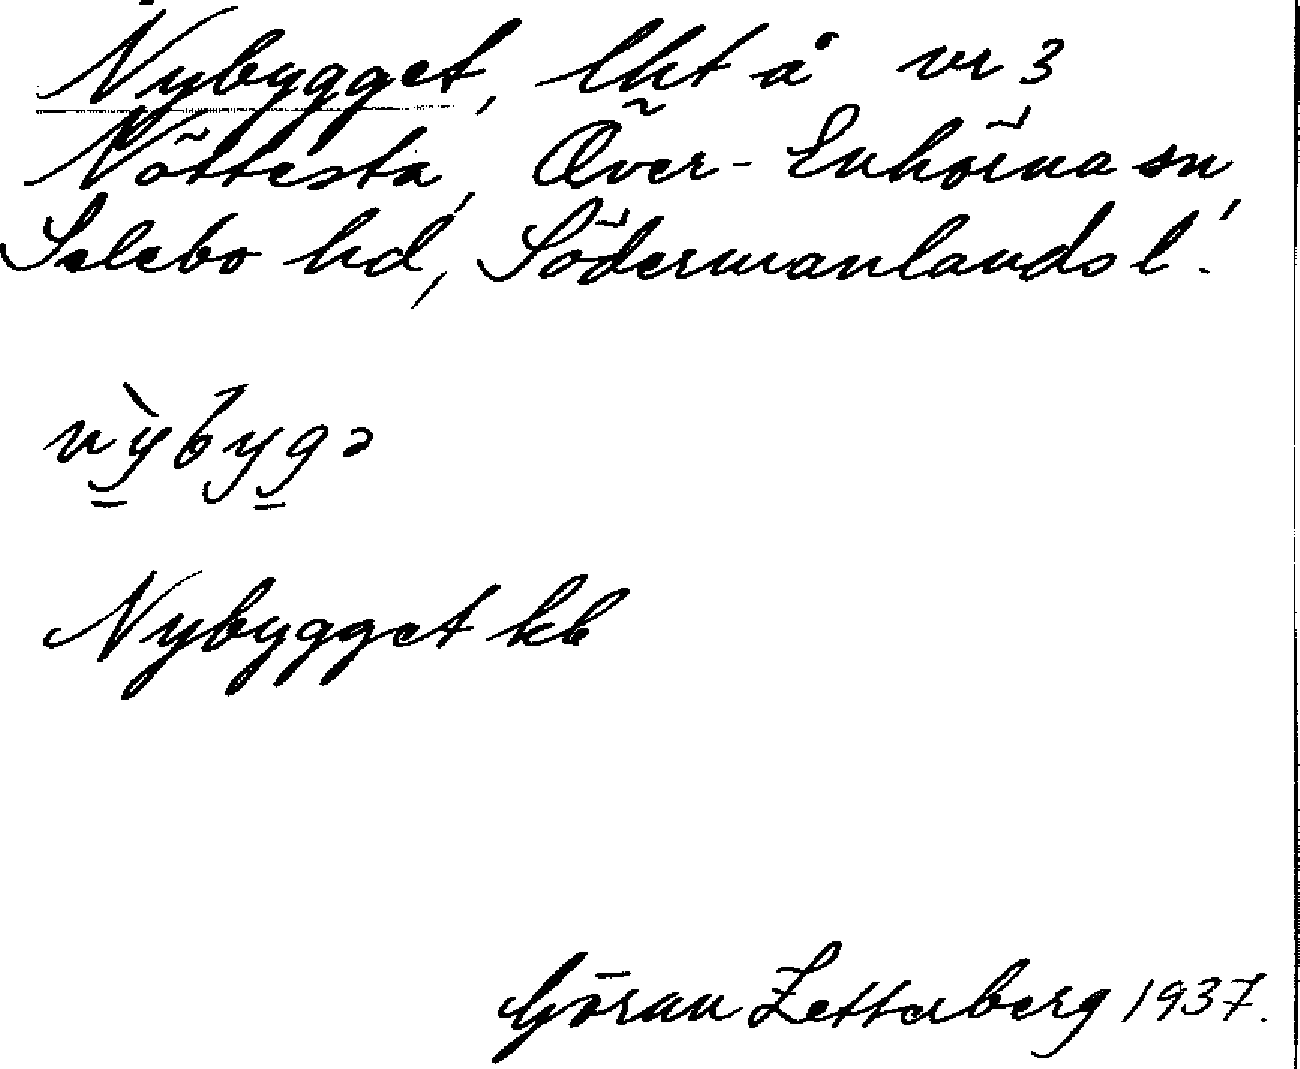 Nybygget, lht å nr 3
Nöttesta, Över-Enhörna sn,
Selebo hd, Södermanlands l.
nỳbygə
Nybygget kb
Göran Zetterberg 1937.